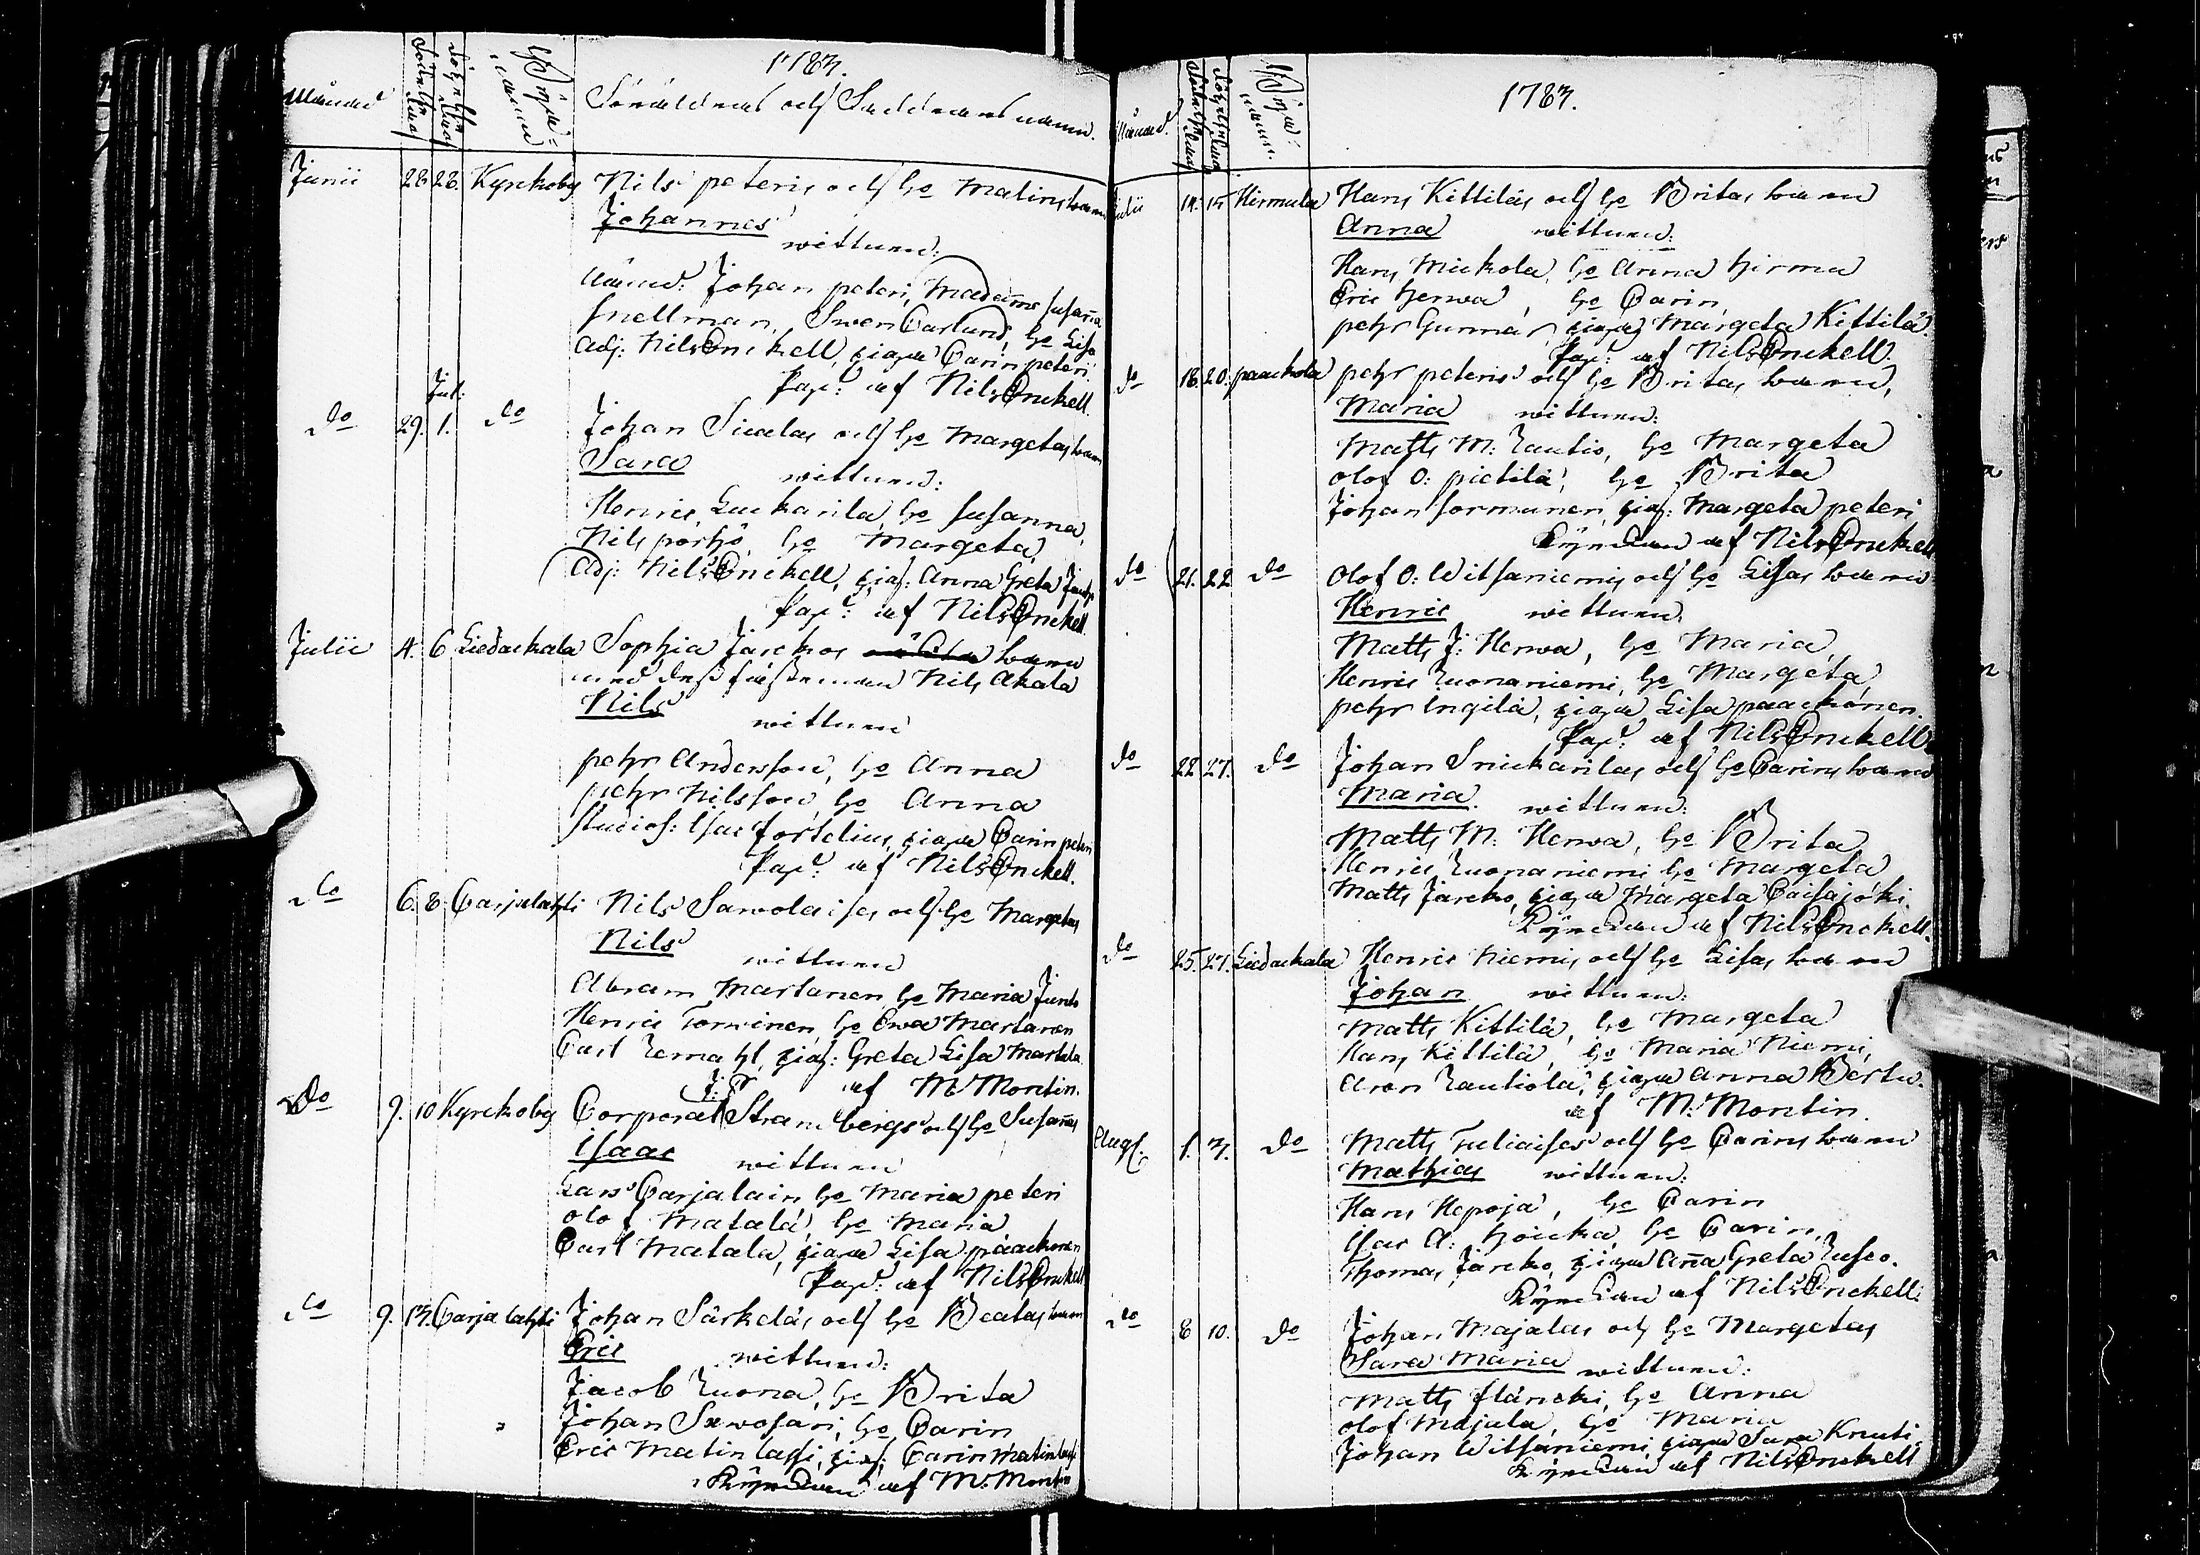 1783.
Månad
Födelse Dag
Döpelse Dag
Byens namn
Föräldrars och Faddrars namn.
Junii 28. 28. Kyrckoby Nils peteris och ho Malins barn
Johannes wittnen:
Länsm. Johan peteri, Madame Susaña
Snellman, Swen Carlund, ho Lisa
Adj: Nils Enckell, pigan Carin peteri.
Jul:
do 29. 1. do Johan Sicalas och ho Margetas barn
Sara wittnen:
Henric Luckarila, ho Susanna,
Nils porhö, ho Margeta,
Adj: Nils Enckell, pig: Anna Greta
af Nils Enckell.
Julii 4. 6 Liedackala Sophia Jarckos barn
med dess fästeman Nils Akala
Nils wittnen
pehr Andersson, ho Anna
pehr Nilsson, ho Anna
Studios: Isac Forselius, pigan Carin peteri
af Nils Enckell.
do 6. 8. Carjalahti Nils Sawolaises och ho Margetas
Nils wittnen
Abram Martanen ho Maria Junto
Henric Torwinen, ho Ewa Martanen
Carl Zernahl, pig: Greta Lisa Martala
af M. Montin.
Do 9. 10 Kyrckoby Corporal Strambergs och ho Susañas
Isaac wittnen
Lars Carjalain, ho Maria peteri
Olof Matala, ho Maria
Carl Matala, pigan Lisa paackonen
af Nils Enckell
do 9. 13. Carjalahti Johan Särkeläs och ho Beatas barn
Eric wittnen:
Jacob Zuona, ho Brita
Johan Sawosari, ho Carin
Eric Matinlassi, pig: Carin Matinlassi
af M. Montin
1783.
Månad.
Födelse Dag
Döpelse Dag
Byens namn.
Julii 14. 15. Hirmula Hans Kittiläs och ho Britas barn
Anna wittnen:
Hans Mickola, ho Anna hirma
Eric herwa, ho Carin
pehr Gunnar, pigan Margeta Kittilä.
af Nils Enckell.
do 18. 20. paackola pehr peteris och ho Britas barn,
Maria wittnen:
Matts M: Zautio, ho Margeta
Olof O: pietilä, ho Brita
Johan Sormunen, pig: Margeta peteri
af Nils Enckell
do 21. 22 do Olof O: Witsaniemis och ho Lisas barn
Henric wittnen.
Matts J: Herwa, ho Maria,
Henric Zuonaniemi, ho Margeta,
pehr Ingilä, pigan Lisa paackonen.
af Nils Enckell
do 22 27. do Johan Snickarilas och ho Carins barn
Maria. wittnen:
Matts M: Herwa, ho Brita
Henric Zuonaniemi ho Margeta
Matts Jarcko, pigan Margeta Caisajoki.
af Nils Enckell.
do 25. 27. Liedackala Henric Niemis och ho Lisas barn
Johan wittnen:
Matts Kittilä, ho Margeta
Hans Kittilä, ho Maria Niemi,
Aron Zautiola, pigan Anna
af M: Montin.
Aug. 1. 3. do Matts Tuliaises och ho Carins barn
Mathias wittnen:
Hans Hepoja, ho Carin
Isac A: hoicka, ho Carin,
Thomas Jarcko, pigan Aña Greta Zusco.
af Nils Enckell.
do 8 10. do Johan Majalas och ho Margetas
Sara Maria wittnen:
Matts flancki, ho Anna
Olof Majala, ho Maria
Johan Witsaniemi, pigan Sara Knuti,
af Nils Enckell